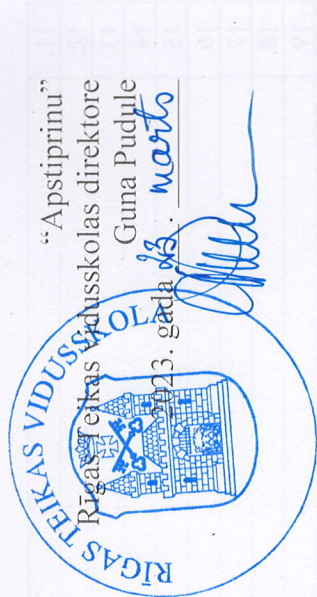 “Apstiprinu”
Rīgas Teikas vidusskolas direktore
Guna Pudule
2023. gada 23. marts
RĪGAS TEIKAS VIDUSSKOLA